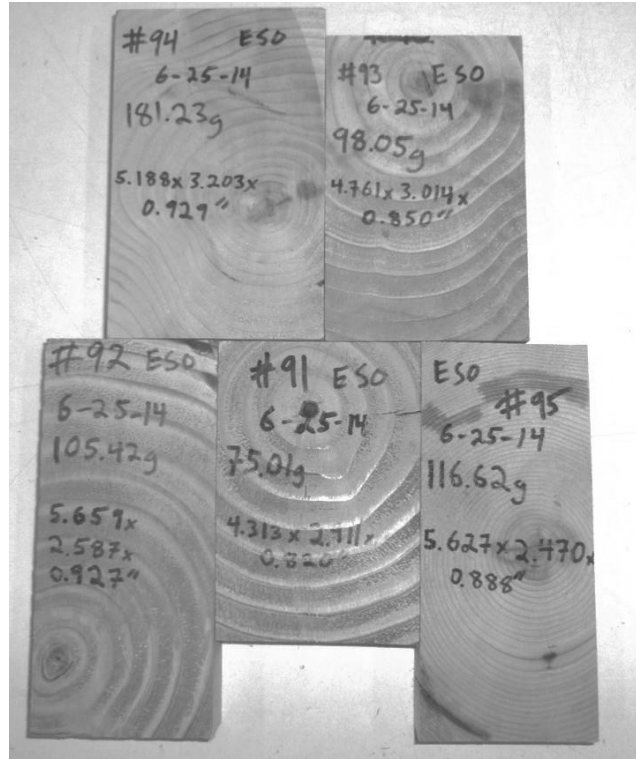 #94 ESO
6-25-14
181.23g
5.188x 3.203x
0.929"
#93 ESO
6-25-14
98.05g
4.761x 3.014x
0.850"
#92 ESO
6-25-14
105.42g
5.659x
2.587x
0.927"
#91 ESO
6-25-14
75.01g
4.313x 2.711x
0.820"
ESO
#95
6-25-14
116.62g
5.627x2.470x
0.888"